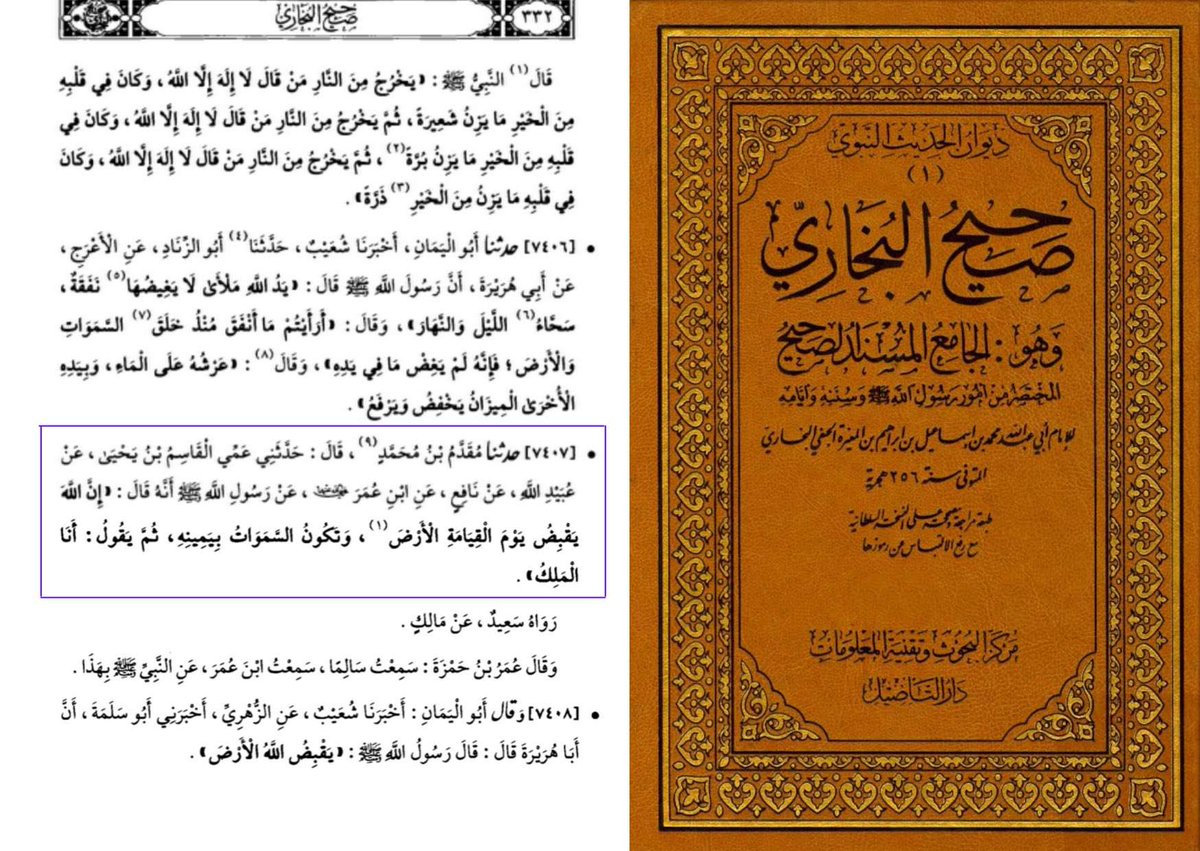 ٣٣٢
صحيح البخاري
قَالَ (١) النَّبِيُّ ﷺ : «يَخْرُجُ مِنَ النَّارِ مَنْ قَالَ لَا إِلَهَ إِلَّا اللَّهُ ، وَكَانَ فِي قَلْبِهِ
مِنَ الْخَيْرِ مَا يَزِنُ شَعِيرَةً ، ثُمَّ يَخْرُجُ مِنَ النَّارِ مَنْ قَالَ لَا إِلَهَ إِلَّا اللَّهُ ، وَكَانَ فِي
قَلْبِهِ مِنَ الْخَيْرِ مَا يَزِنُ بُرَّةً (٢) ، ثُمَّ يَخْرُجُ مِنَ النَّارِ مَنْ قَالَ لَا إِلَهَ إِلَّا اللَّهُ ، وَكَانَ
فِي قَلْبِهِ مَا يَزِنُ مِنَ الْخَيْرِ (٣) ذَرَّةً» .
• [٧٤٠٦] حدثنا أَبُو الْيَمَانِ ، أَخْبَرَنَا شُعَيْبٌ ، حَدَّثَنَا (٤) أَبُو الزِّنَادِ ، عَنِ الْأَعْرَجِ ،
عَنْ أَبِي هُرَيْرَةَ ، أَنَّ رَسُولَ اللَّهِ ﷺ قَالَ : «يَدُ اللَّهِ مَلْأَى لَا يَغِيضُهَا (٥) نَفَقَةٌ ،
سَحَّاءُ (٦) اللَّيْلَ وَالنَّهَارَ» ، وَقَالَ : «أَرَأَيْتُمْ مَا أَنْفَقَ مُنْذُ خَلَقَ (٧) السَّمَوَاتِ
وَالْأَرْضَ ؛ فَإِنَّهُ لَمْ يَغِضْ مَا فِي يَدِهِ» ، وَقَالَ (٨) : «عَرْشُهُ عَلَى الْمَاءِ ، وَبِيَدِهِ
الْأُخْرَى الْمِيزَانُ يَخْفِضُ وَيَرْفَعُ» .
• [٧٤٠٧] حدثنا مُقَدَّمُ بْنُ مُحَمَّدٍ (٩) ، قَالَ : حَدَّثَنِي عَمِّي الْقَاسِمُ بْنُ يَحْيَى ، عَنْ
عُبَيْدِ اللَّهِ ، عَنْ نَافِعٍ ، عَنِ ابْنِ عُمَرَ ، عَنْ رَسُولِ اللَّهِ ﷺ أَنَّهُ قَالَ : «إِنَّ اللَّهَ
يَقْبِضُ يَوْمَ الْقِيَامَةِ الْأَرْضَ (١) ، وَتَكُونُ السَّمَوَاتُ بِيَمِينِهِ ، ثُمَّ يَقُولُ : أَنَا
الْمَلِكُ» .
رَوَاهُ سَعِيدٌ ، عَنْ مَالِكٍ .
وَقَالَ عُمَرُ بْنُ حَمْزَةَ : سَمِعْتُ سَالِمًا ، سَمِعْتُ ابْنَ عُمَرَ ، عَنِ النَّبِيِّ ﷺ بِهَذَا .
• [٧٤٠٨] وَقَالَ أَبُو الْيَمَانِ : أَخْبَرَنَا شُعَيْبٌ ، عَنِ الزُّهْرِيِّ ، أَخْبَرَنِي أَبُو سَلَمَةَ ، أَنَّ
أَبَا هُرَيْرَةَ قَالَ : قَالَ رَسُولُ اللَّهِ ﷺ : «يَقْبِضُ اللَّهُ الْأَرْضَ» .
ديوان الحديث النبوي
(١)
صحيح البخاري
وهو : الجامع المسند الصحيح
المختصر من أمور رسول الله ﷺ وسننه وأيامه
للإمام أبي عبد الله محمد بن إسماعيل بن إبراهيم بن المغيرة الجعفي البخاري
المتوفى سنة ٢٥٦ هجرية
طبعة مراجعة ومصححة على النسخة السلطانية
مع رفع الالتباس عن رموزها
مركز البحوث وتقنية المعلومات
دار التأصيل